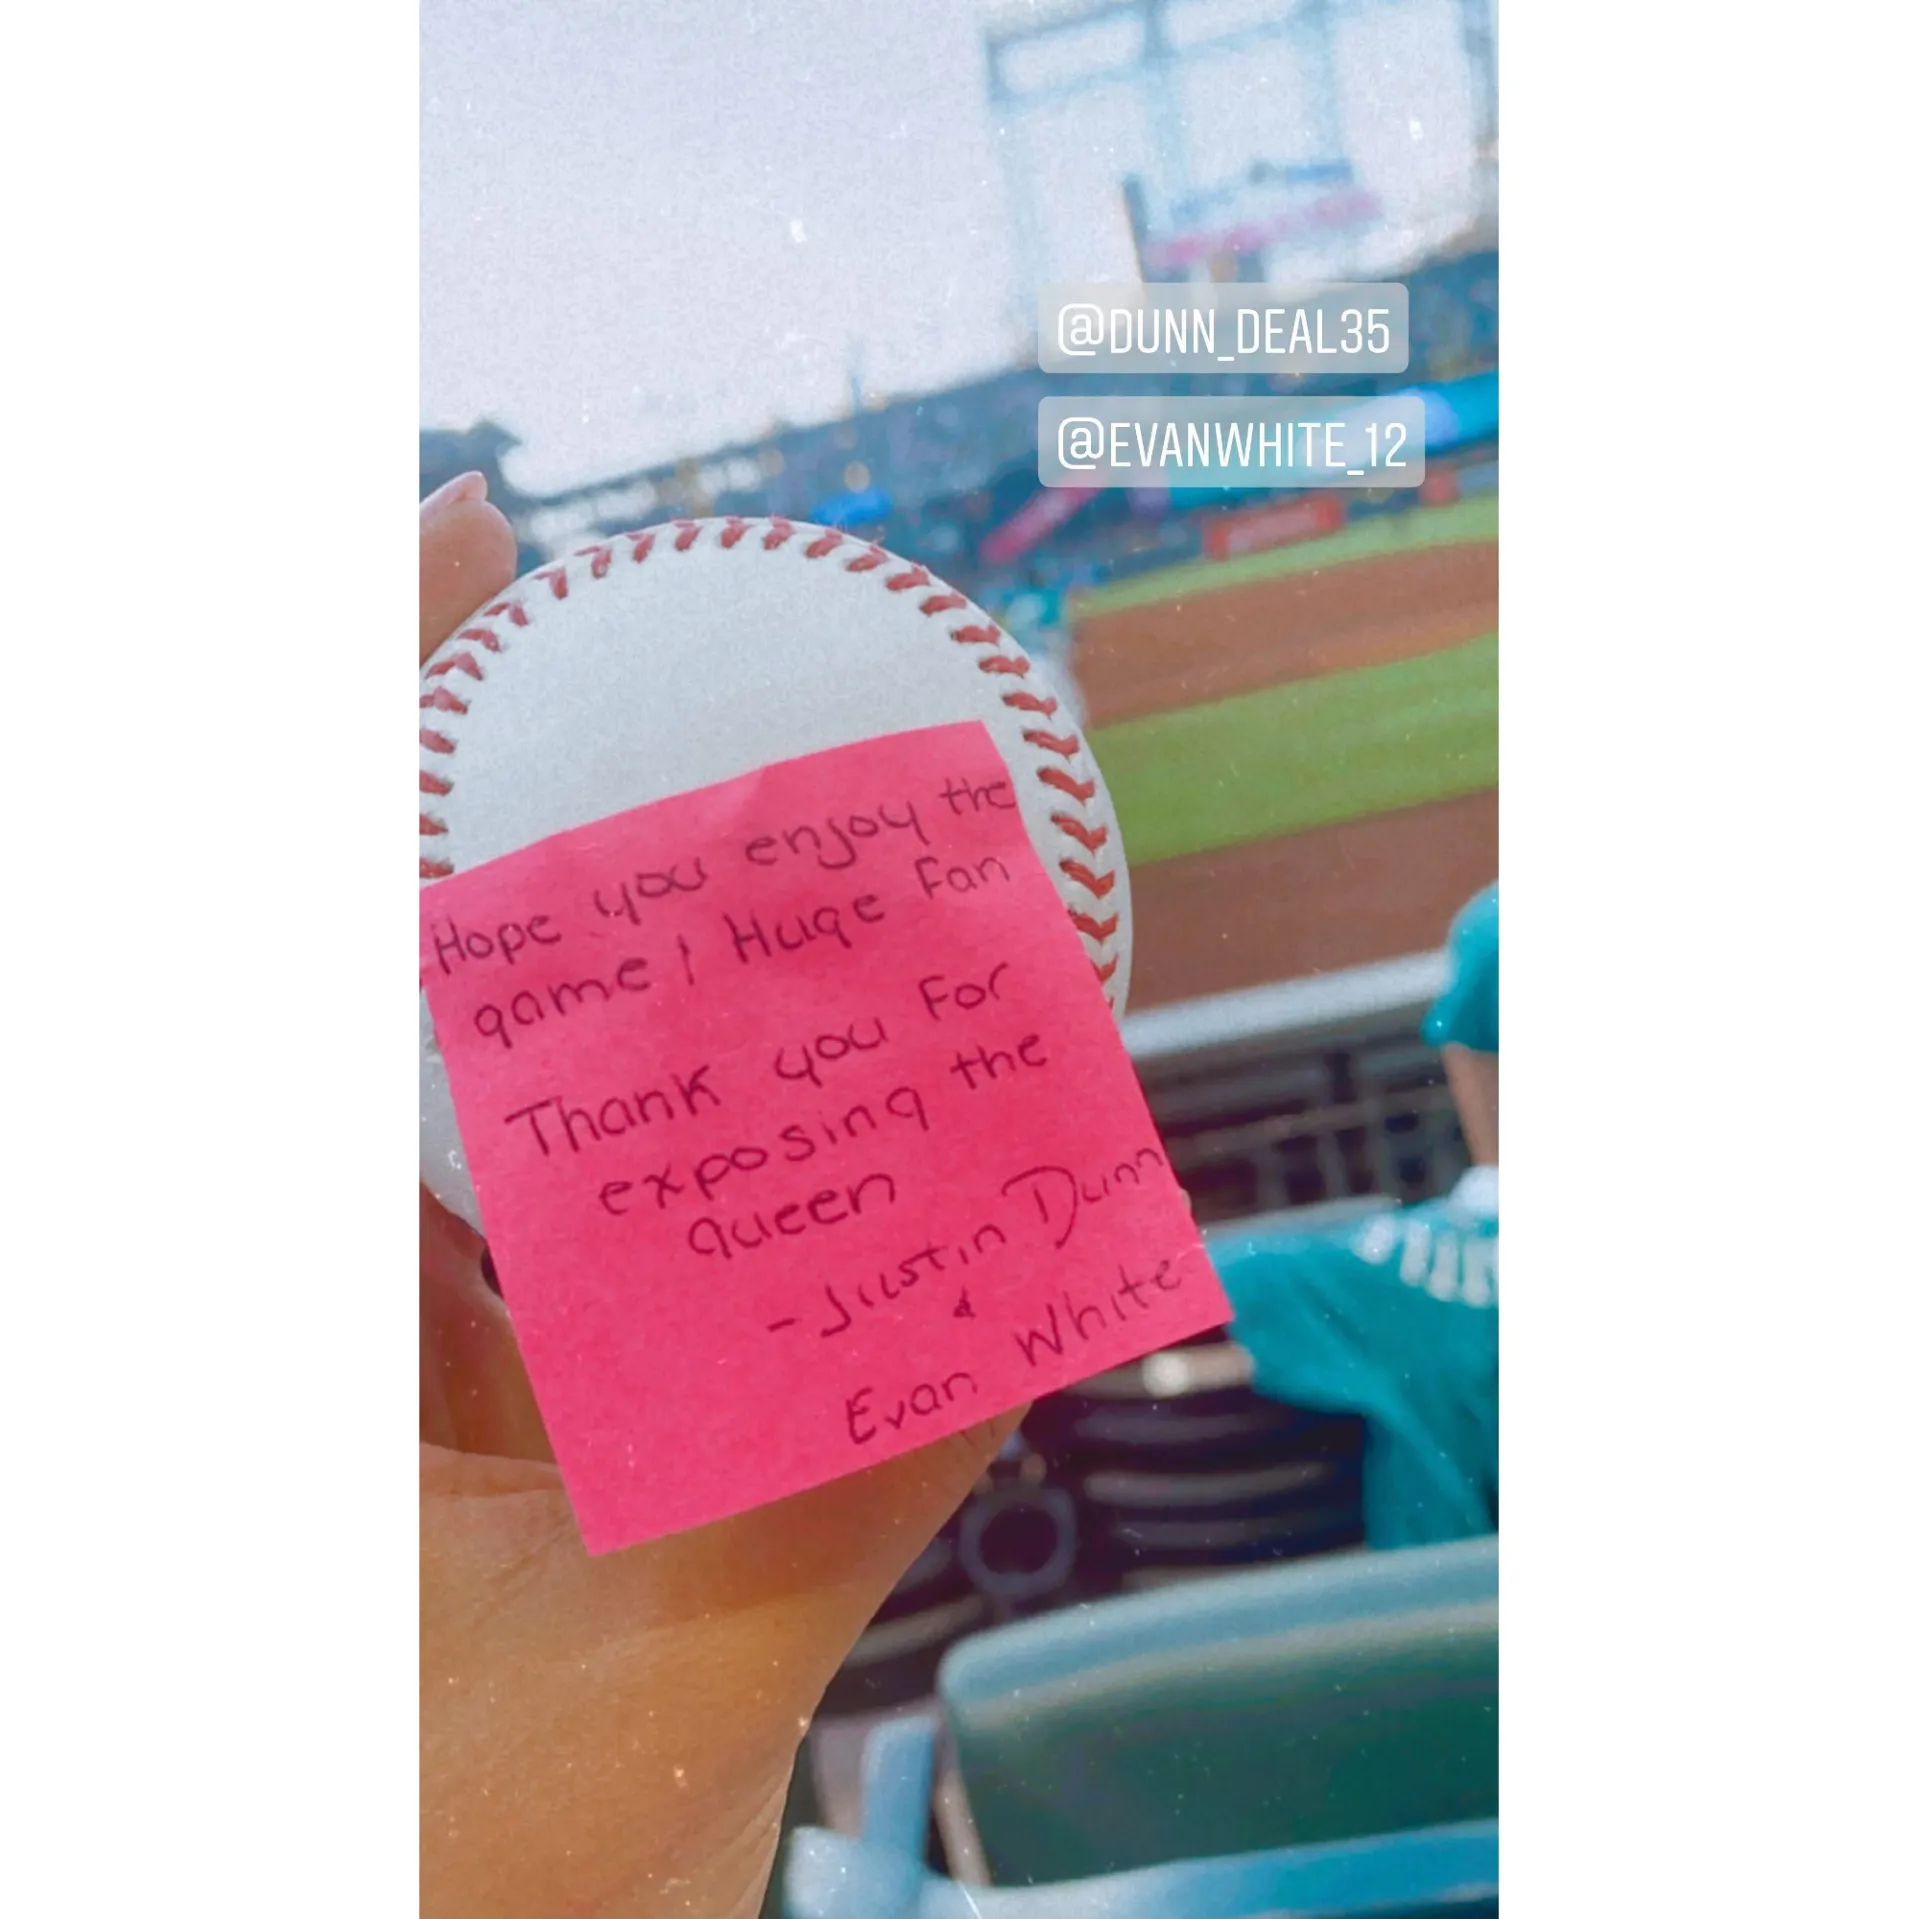 @DUNN_DEAL35
@EVANWHITE_12
Hope you enjoy the
game! Huge Fan
Thank you For
exposing the
queen
-Justin Dunn
&
Evan White